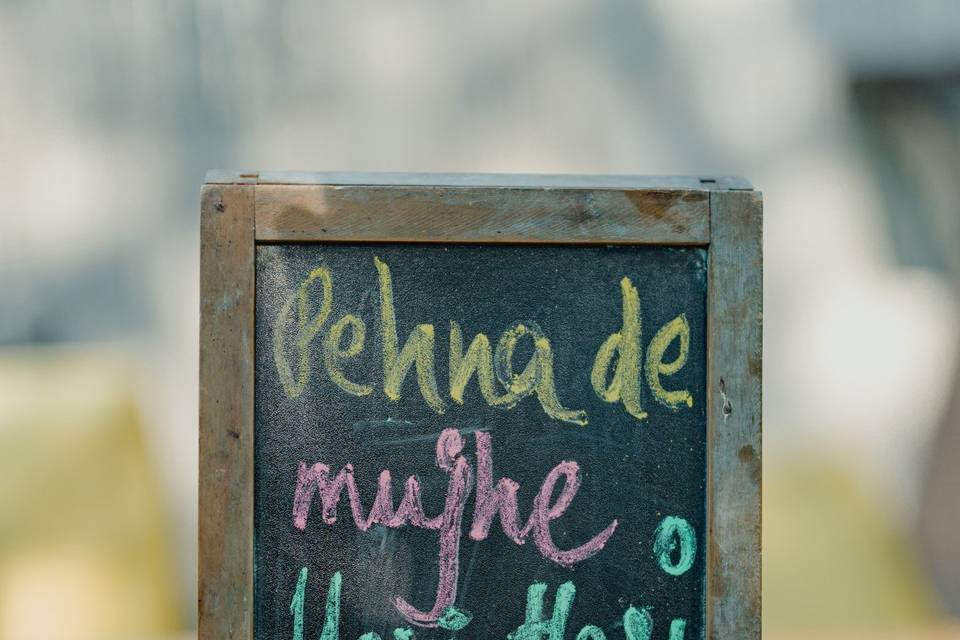 Pehna de
mujhe